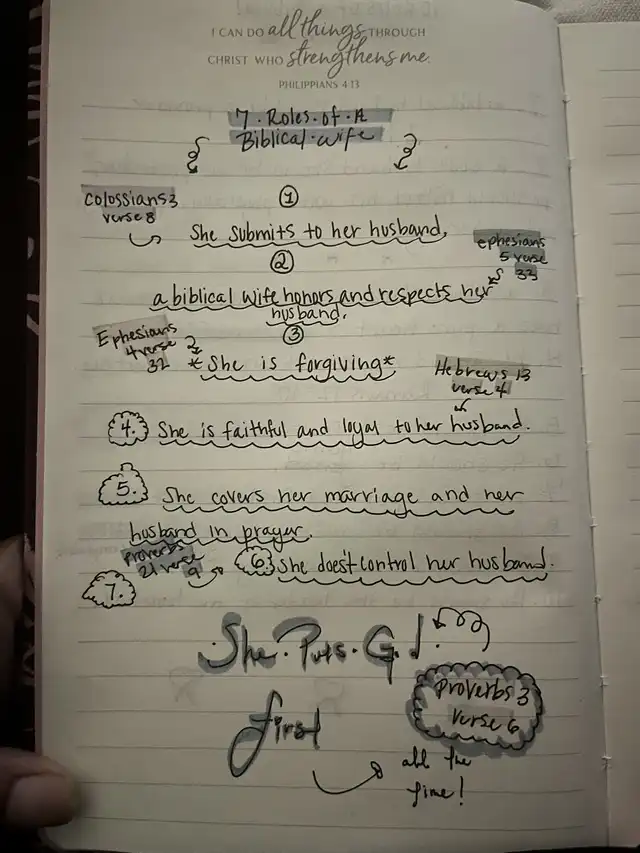 I CAN DO all things THROUGH
CHRIST WHO strengthens me.
PHILIPPIANS 4:13
7. Roles. of. A
Biblical. wife
Colossians 3
verse 8
①
She submits to her husband.
ephesians
5 verse
33
②
a biblical wife honors and respects her
husband.
③
Ephesians
4 verse
32
*She is forgiving*
Hebrews 13
verse 4
4. She is faithful and loyal to her husband.
5. She covers her marriage and her
husband in prayer.
Proverbs
21 verse
9
6. She does't control her husband.
7.
She. Puts. G.d.
first
Proverbs 3
verse 6
all the
time!